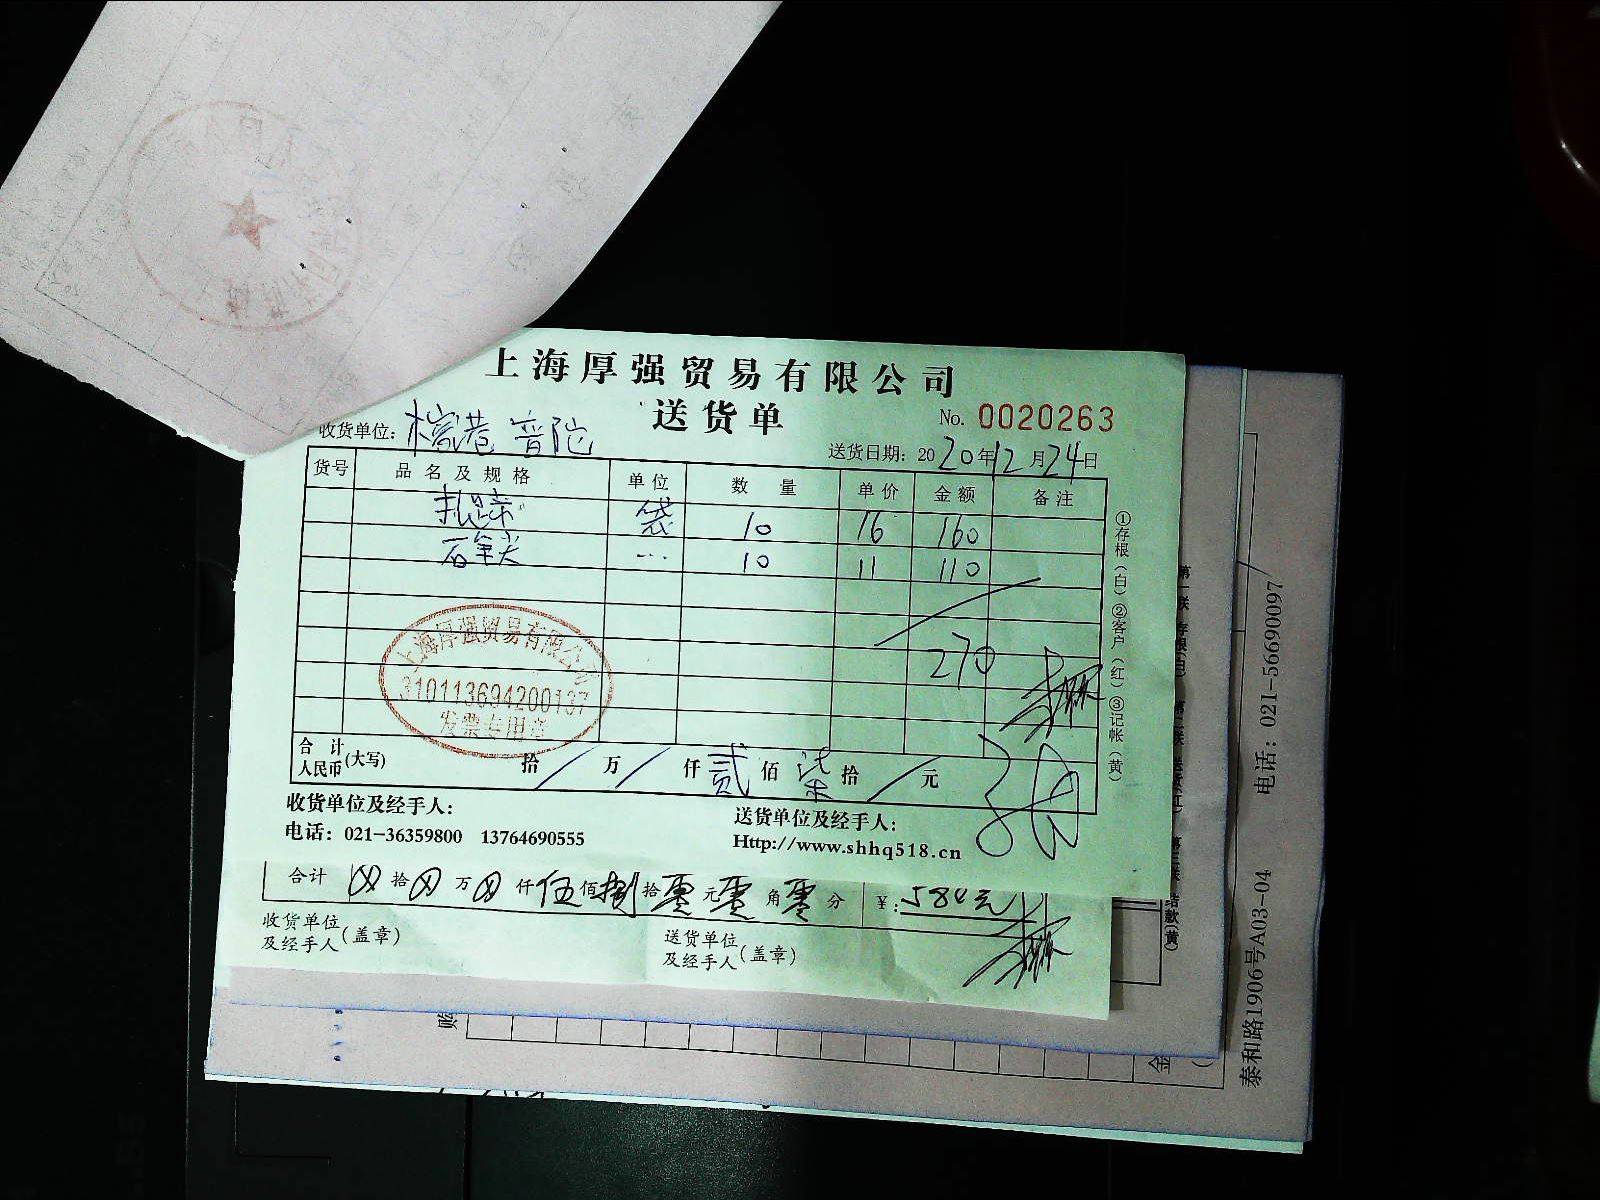 上海厚强贸易有限公司
送货单
No. 0020263
收货单位: 普陀
送货日期: 2020年12月24日
货号 品名及规格 单位 数量 单价 金额 备注
袋 10 16 160
石笔尖 … 10 11 110
270
上海厚强贸易有限公司
310113694200137
发票专用章
合计人民币(大写) 拾 / 万 / 仟 贰 佰 柒 拾 / 元
收货单位及经手人:
送货单位及经手人:
电话: 021-36359800 13764690555
Http://www.shhq518.cn
①存根(白)②客户(红)③记帐(黄)
合计 拾 万 仟 伍 佰 捌 拾 零 元 零 角 零 分 ¥: 580元
收货单位及经手人(盖章)
送货单位及经手人(盖章)
泰和路1906号A03-04 电话: 021-56690097
金